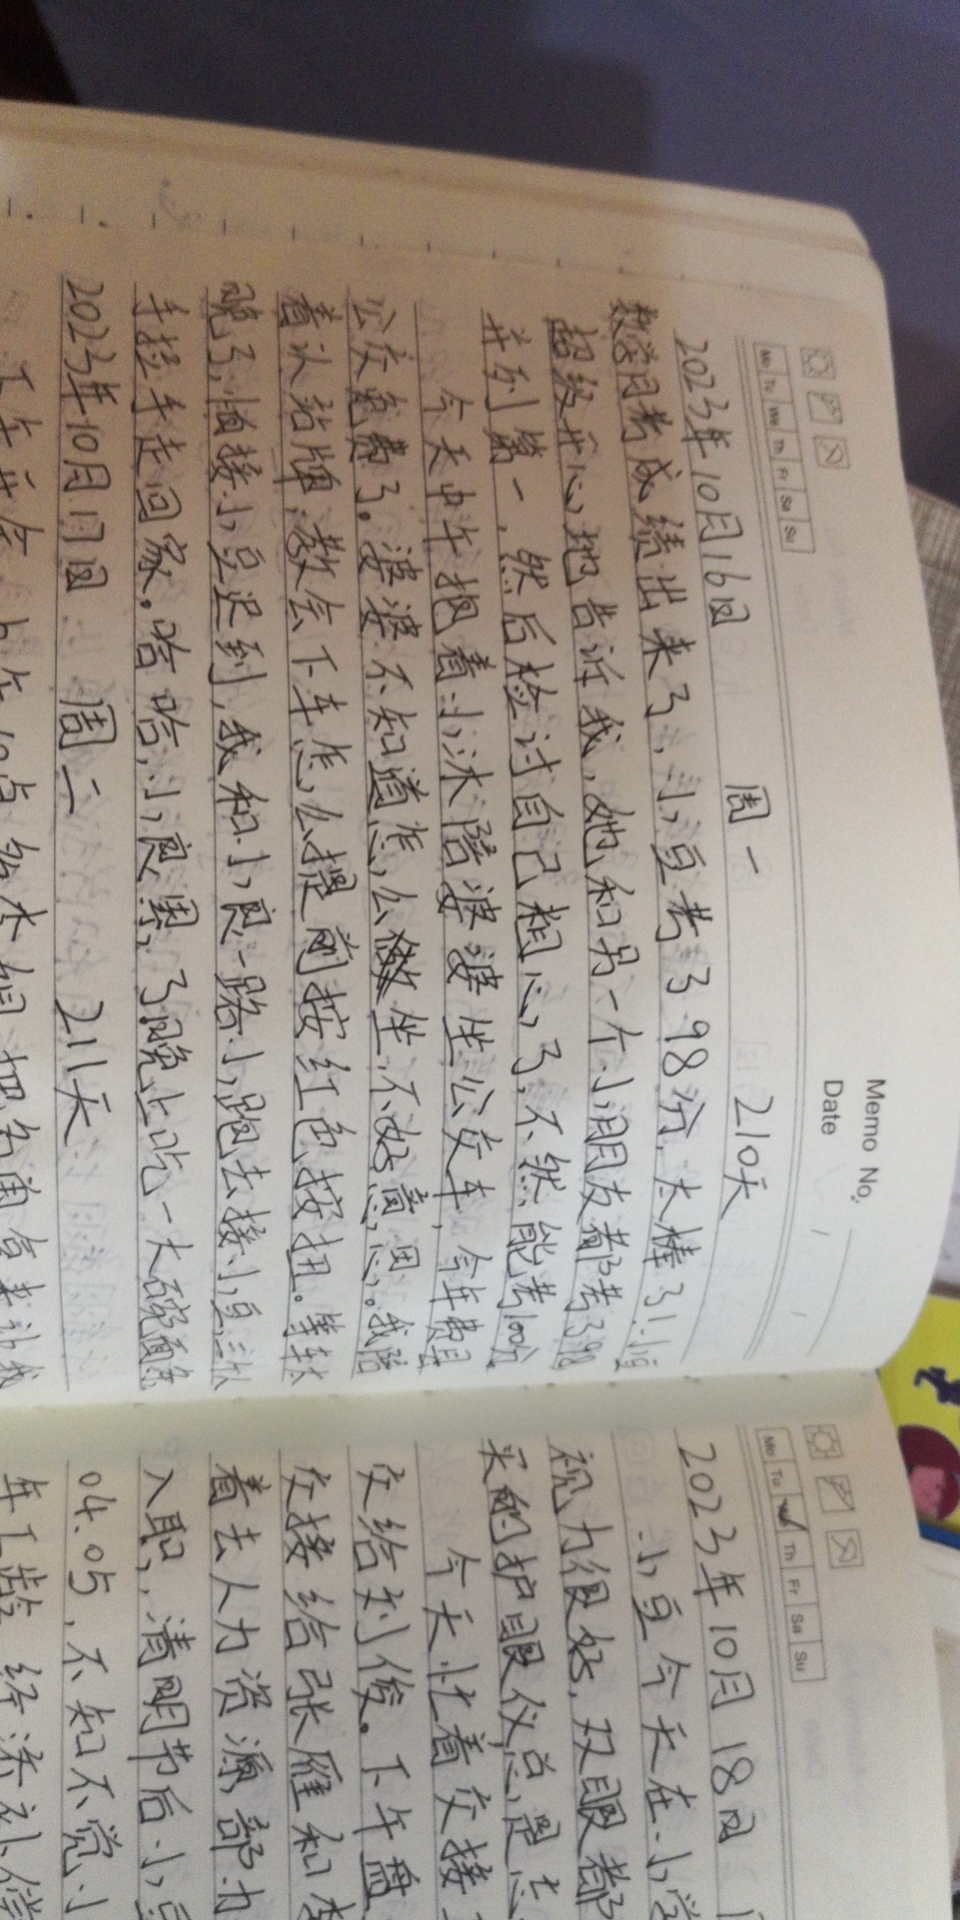 Memo No.
Date
Mo Tu We Th Fr Sa Su
2023年10月16日 周一 210天
数学月考成绩出来了，小豆考了98分，太棒了！小豆
超级开心地告诉我，她和另一个小朋友都考了98
并列第一，然后检讨自己粗心了，不然能考100分
今天中午抱着小沐陪婆婆坐公交车，今年费县
公交免费了。婆婆不知道怎么坐，不好意思。我陪
着认站牌，教会下车怎么提前按红色按扭。等车太
晚了，怕接小豆迟到，我和小良一路小跑去接小豆，三个人
手拉手走回家。哈哈，小良累了晚上吃一大碗面条
2023年10月17日 周二 211天
Mo Tu We Th Fr Sa Su
2023年10月18日
小豆今天在小学
视力很好，双眼都
买的护眼仪总是忘
今天忙着交接
交给刘俊。下午盘
交接给张雁和李
着去人力资源部办
入职，清明节后小豆
04.05，不知不觉小
年工龄 经济补偿